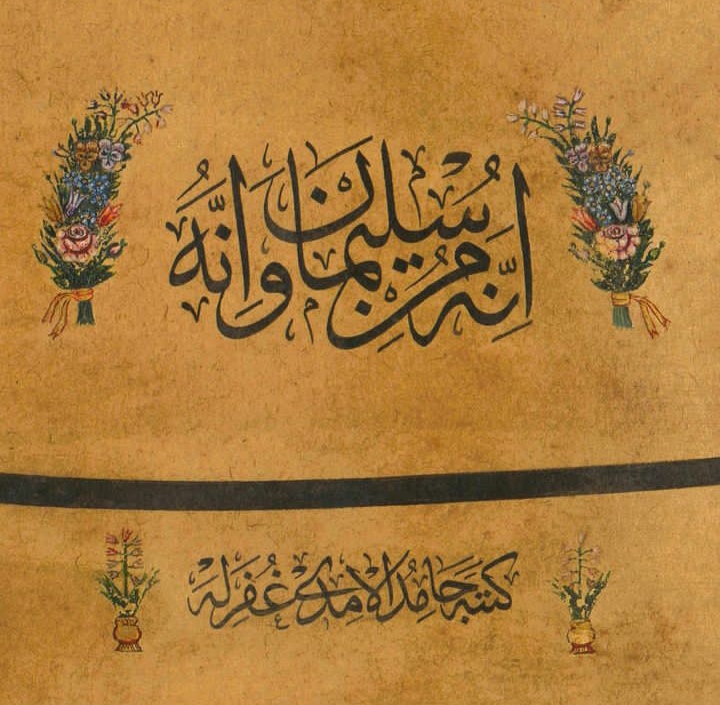 اِنَّهُ مِنْ سُلَيْمَانَ وَاِنَّهُ
كتبه حامد الآمدي غفر له